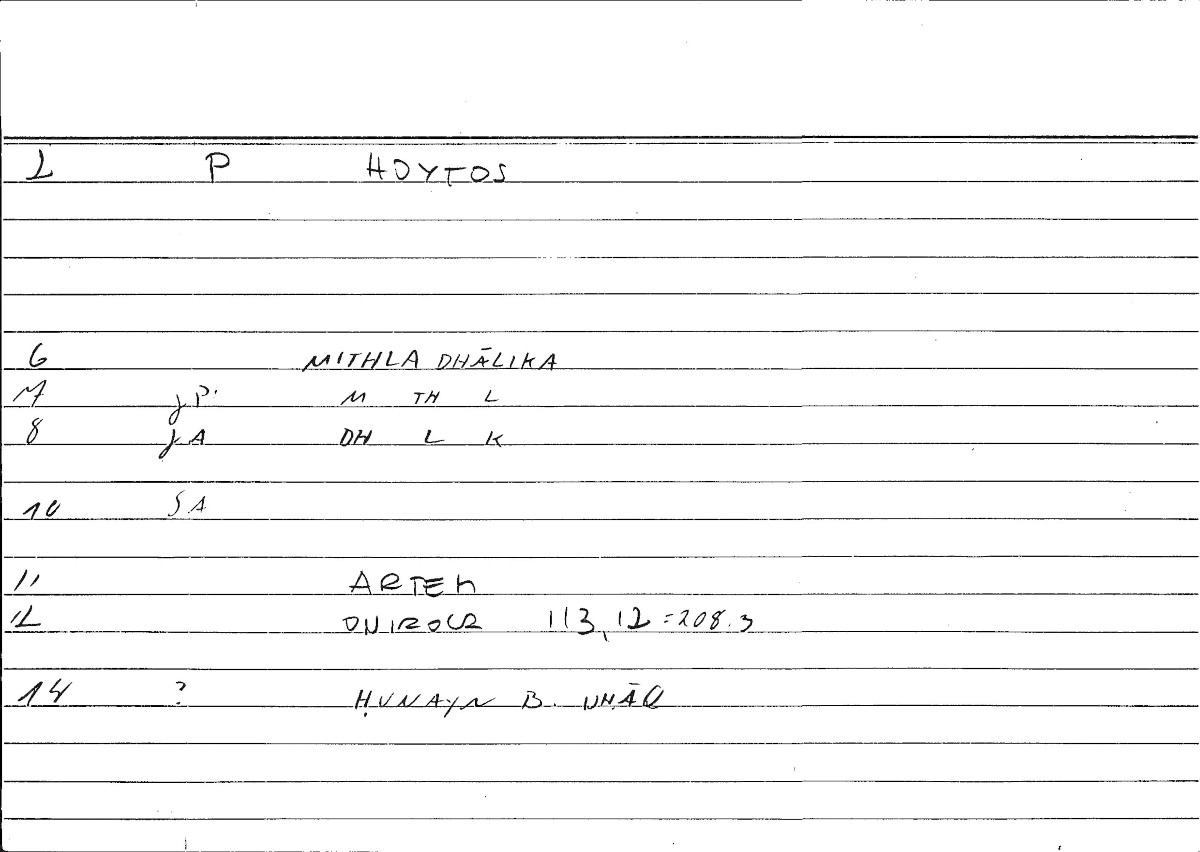 L P HOYTOS
6 MITHLA DHĀLIKA
7 JP. M TH L
8 JA DH L K
10 SA
11 ARTEM
12 ONIROCR 113,12=208.3
14 ? ḤUNAYN B.